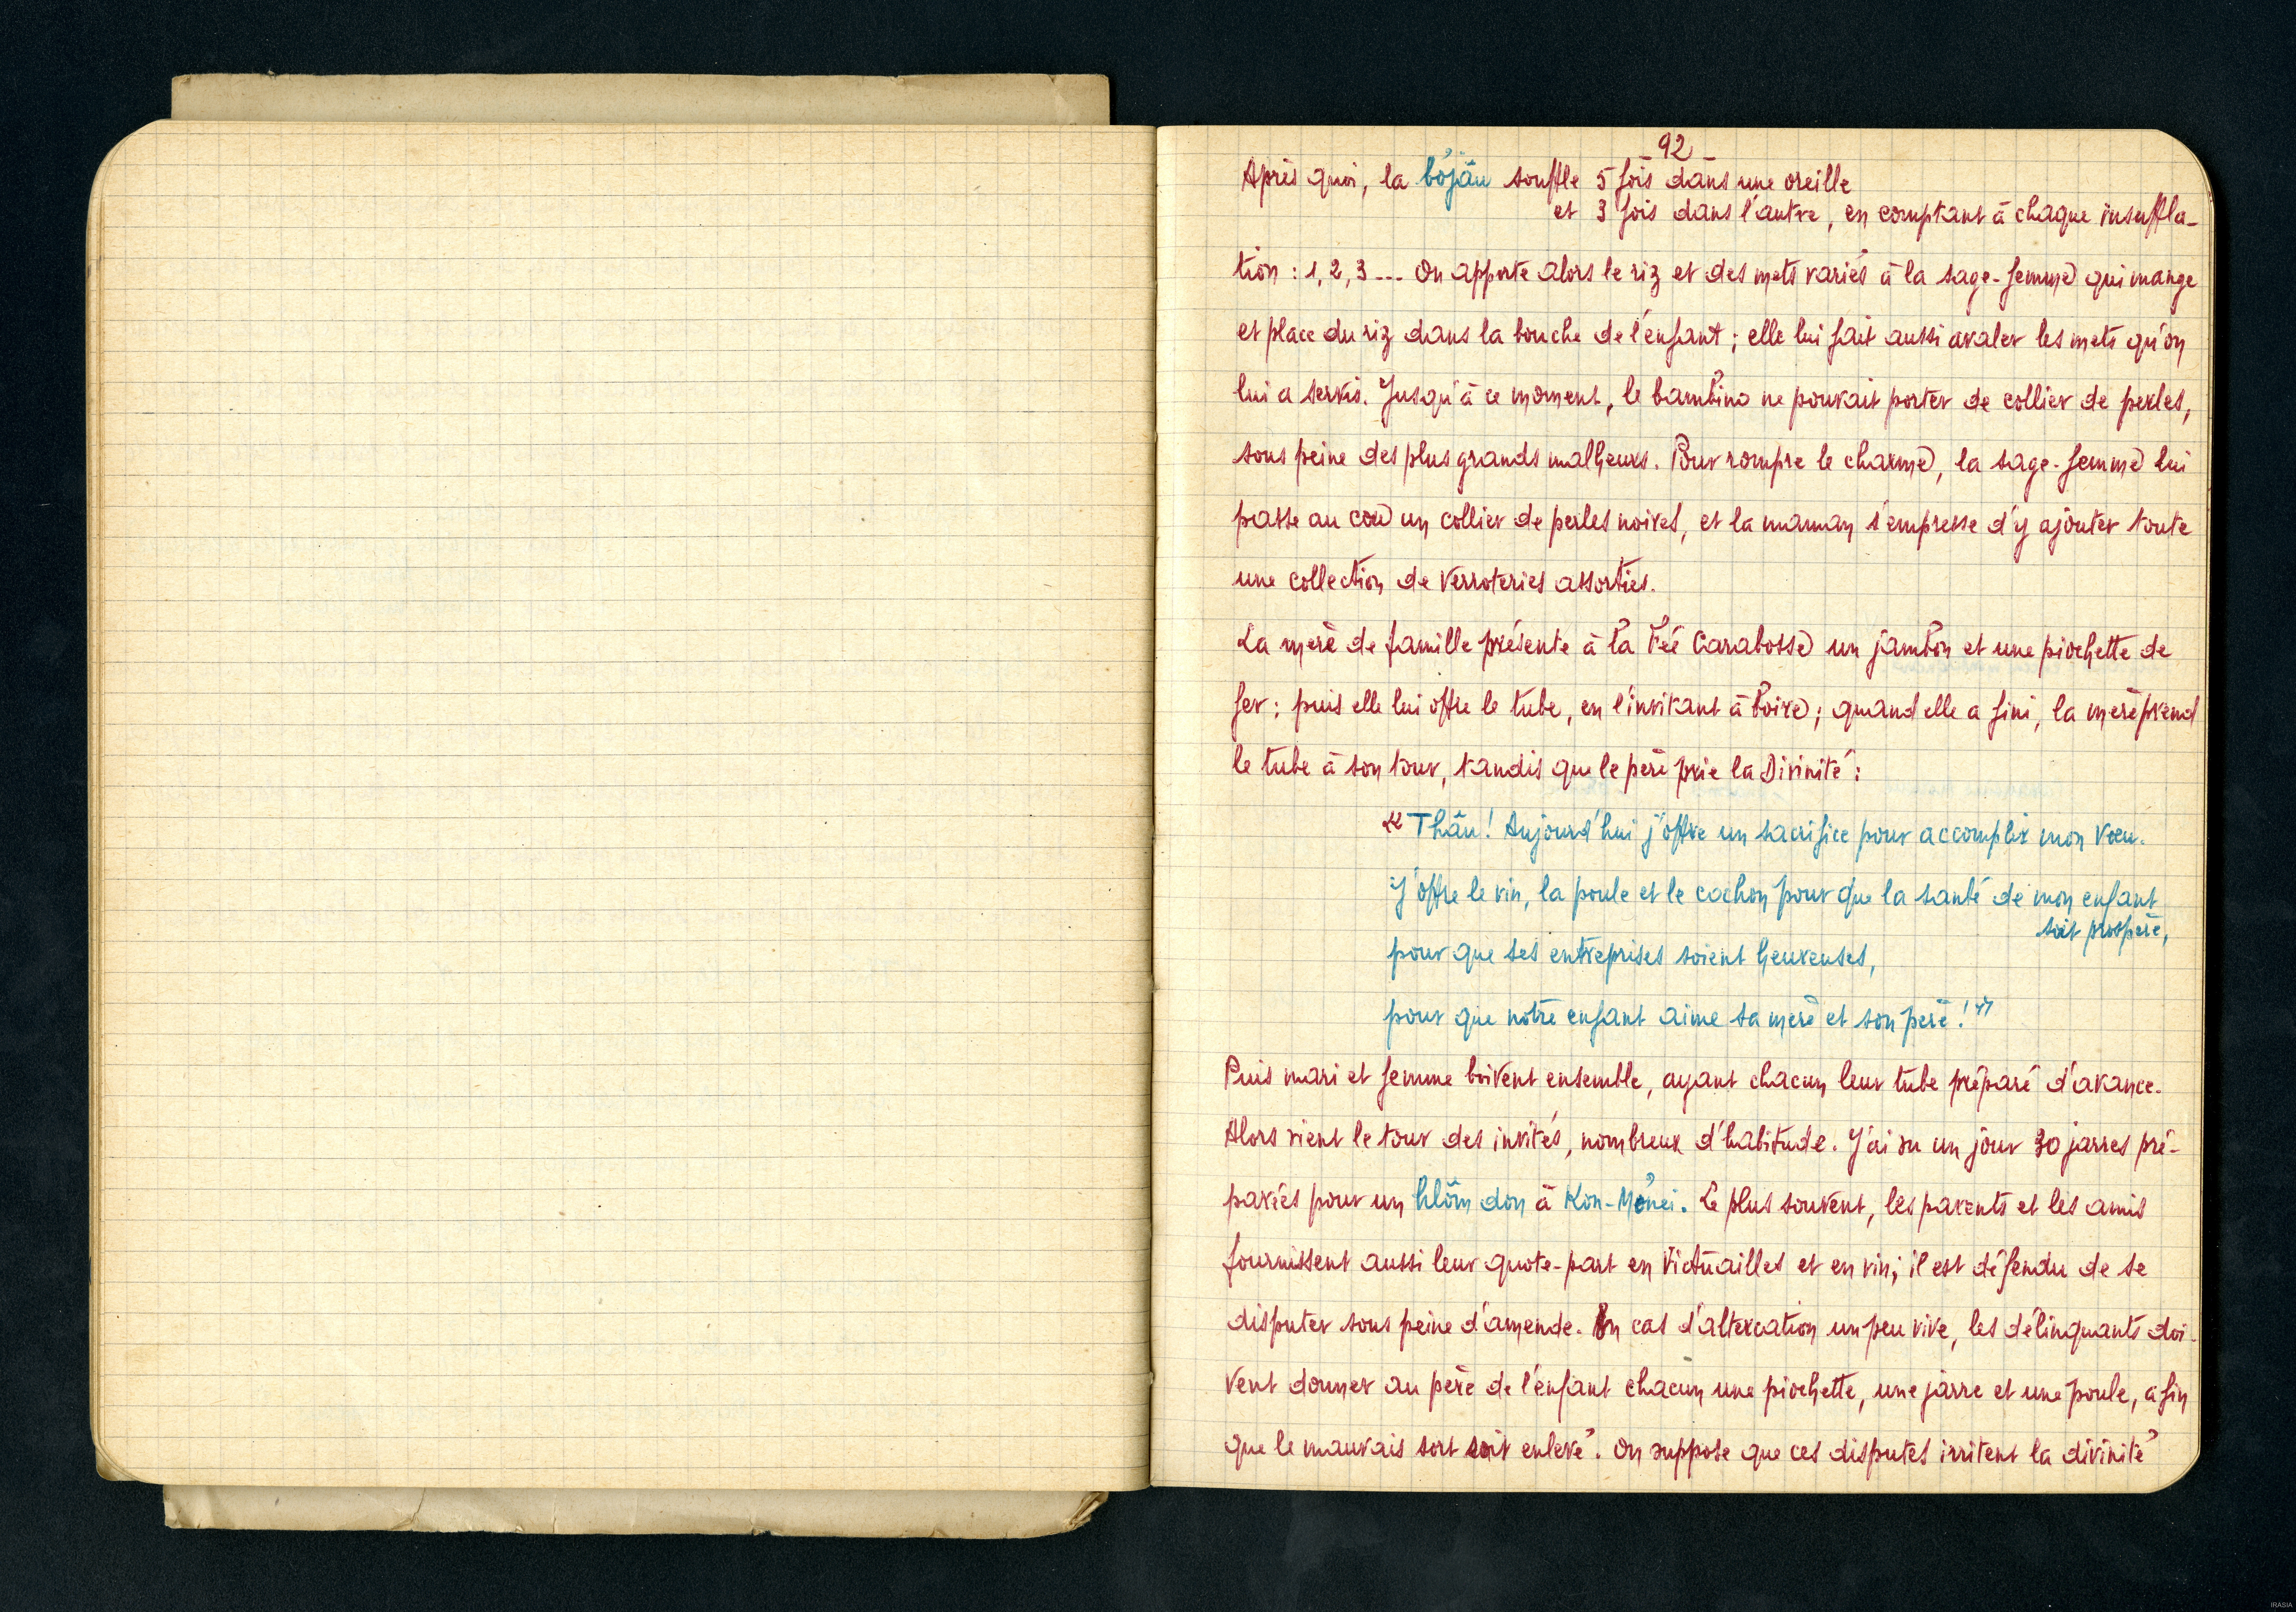 - 92 -
Après quoi, la bơjâu souffle 5 fois dans une oreille
et 3 fois dans l'autre, en comptant à chaque insuffla-
tion : 1, 2, 3 --- On apporte alors le riz et des mets variés à la sage-femme qui mange
et place du riz dans la bouche de l'enfant ; elle lui fait aussi avaler les mets qu'on
lui a servis. Jusqu'à ce moment, le bambino ne pouvait porter de collier de perles,
sous peine des plus grands malheurs. Pour rompre le charme, la sage-femme lui
passe au cou un collier de perles noires, et la maman s'empresse d'y ajouter toute
une collection de verroteries assorties.
La mère de famille présente à la Fée Carabosse un jambon et une piochette de
fer ; puis elle lui offre le tube, en l'invitant à boire ; quand elle a fini, la mère prend
le tube à son tour, tandis que le père prie la Divinité :
" Thâu ! Aujourd'hui j'offre un sacrifice pour accomplir mon vœu.
J'offre le vin, la poule et le cochon pour que la santé de mon enfant
soit prospère,
pour que ses entreprises soient heureuses,
pour que notre enfant aime sa mère et son père ! "
Puis mari et femme boivent ensemble, ayant chacun leur tube préparé d'avance.
Alors vient le tour des invités, nombreux d'habitude. J'ai vu un jour 30 jarres pré-
parées pour un hlôm don à Kon-Mơnei. Le plus souvent, les parents et les amis
fournissent aussi leur quote-part en victuailles et en vin ; il est défendu de se
disputer sous peine d'amende. En cas d'altercation un peu vive, les délinquants doi-
vent donner au père de l'enfant chacun une piochette, une jarre et une poule, afin
que le mauvais sort soit enlevé. On suppose que ces disputes irritent la divinité
IRASIA